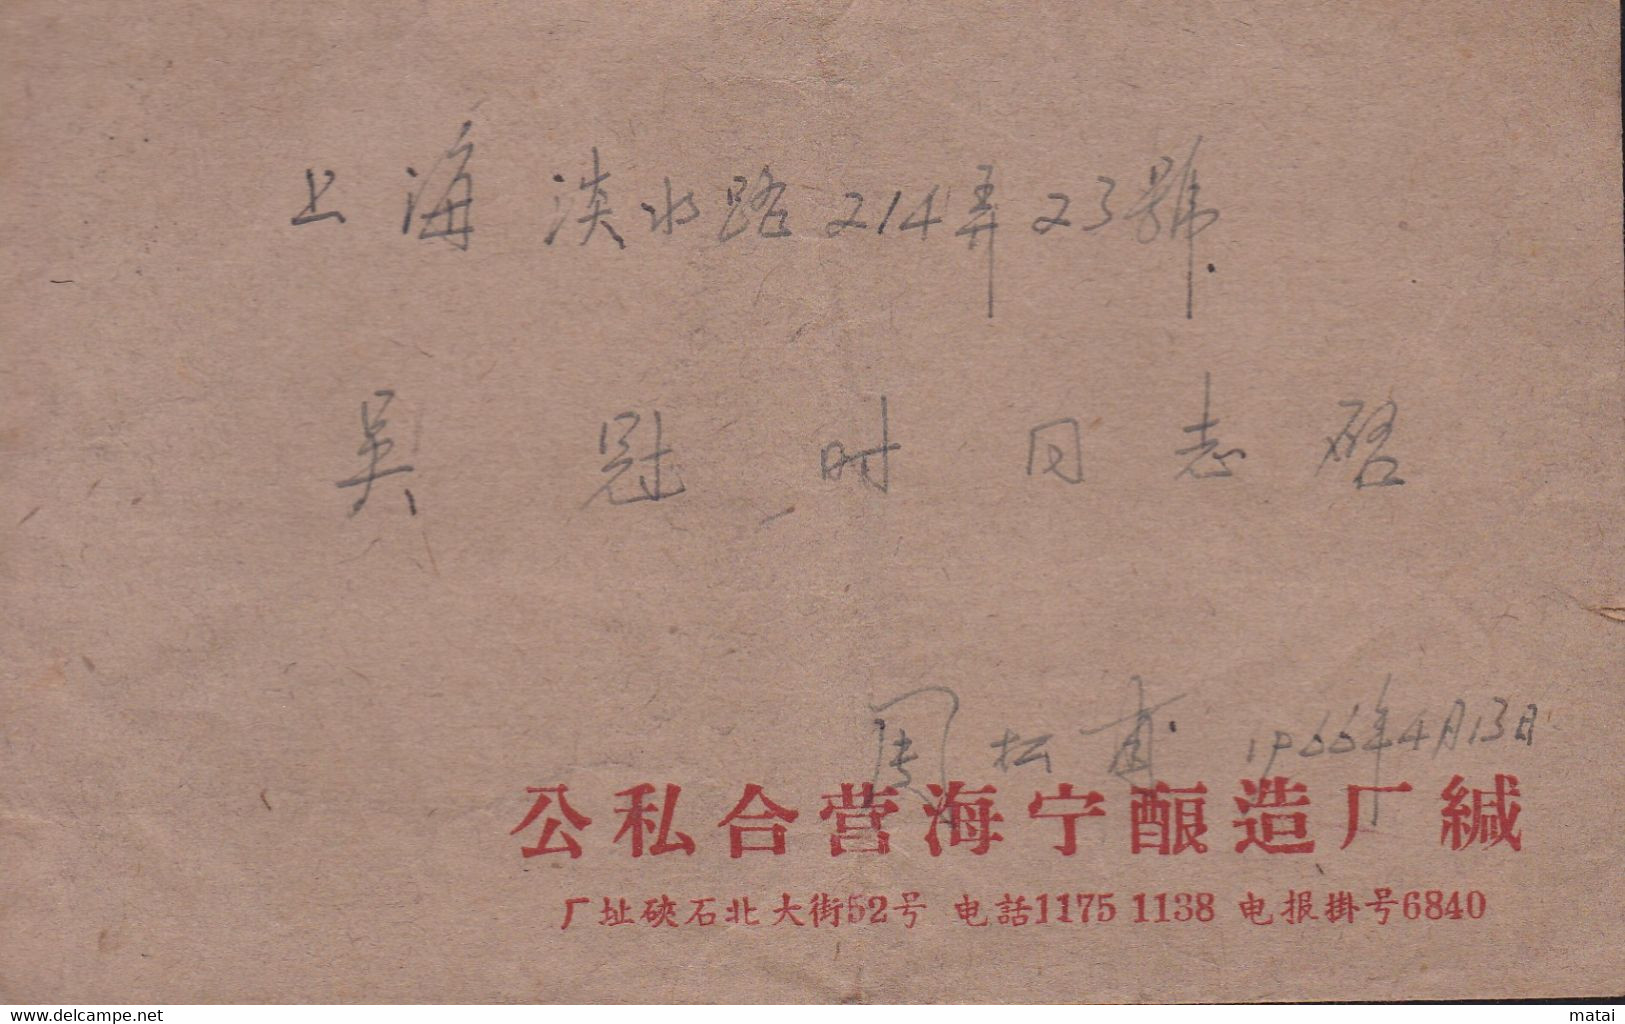 上海淡水路214弄23號
吴冠时同志啓
周松甫 1966年4月13日
公私合营海宁酿造厂緘
厂址硤石北大街52号 电話1175 1138 电报掛号6840
delcampe.net
matai